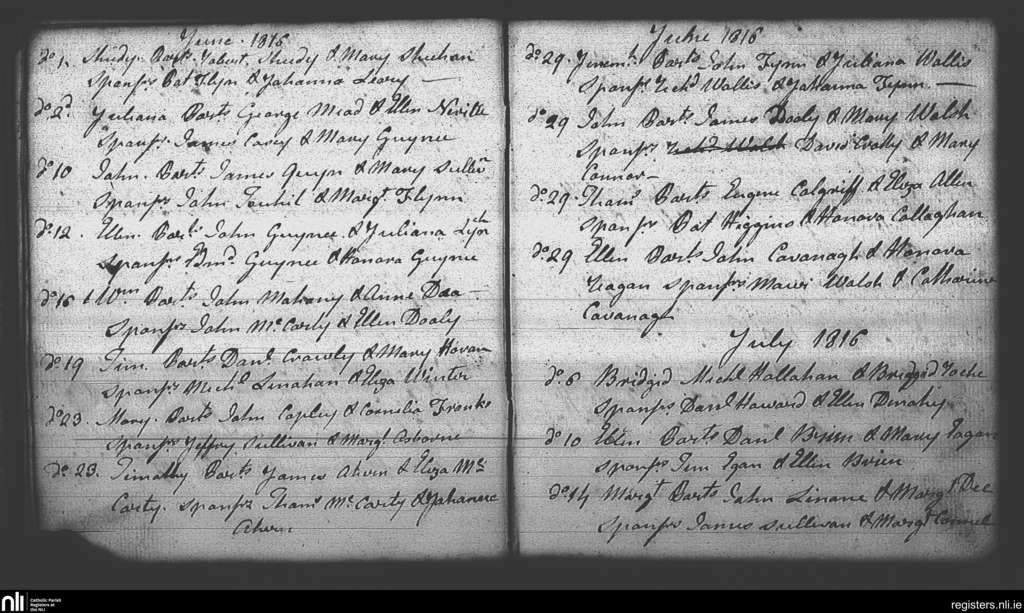 June. 1816
do 1. Parts. Robert, Study & Mary Sheehan
Sponsrs. Pat Flyn & Johanna Leary —
do 2d Juliana Parts George Mead & Ellen Neville
Sponsrs. James Casey & Mary Guynee
do 10 John. Parts James Quyn & Mary Sullivn
Sponsrs John & Margt. Flynn
do 12. Ellen. Parts. John Guynee & Juliana
Sponsrs. Edmd. Guynee & Honora Guynee
do 16 Wm Parts. John Mahony & Anne Daa—
Sponsrs John McCarty & Ellen Dooly
do 19 Tim. Parts Danl. Crowly & Mary Horan
Sponsrs. Michl. Linahan & Eliza Winter
do 23. Mary. Parts John Copley & Cornelia Franks
Sponsrs Jeffry Sullivan & Margt. Osborne
do 23. Timothy Parts James Ahern & Eliza Mc
Carty. Sponsrs Thams McCarty & Johanna
Ahern
June 1816
do 29. Jeremh. Parts John Flynn & Juliana Wallis
Sponsrs Richd Wallis & Johanna Flynn. —
do 29 John Parts. James Dooly & Mary Walsh
Sponsrs. Richd Walsh David & Mary
Connor—
do 29. Thams Parts Eugene Colgriff & Eliza Allen
Sponsrs Pat Higgins & Honora Callaghan
do 29 Ellen Parts John Cavanagh & Honora
Reagan Sponsrs Maurs Walsh & Catharine
Cavanagh
July 1816
do. 6 Bridgid Michl Hallahan & Bridgid Roche
Sponsrs Danl Howard & Ellen Denahy
do 10 Ellen Parts Danl Brien & Mary Eagan
Sponsrs Tim Egan & Ellen Brien
do 14 Margt Parts John Linane & Margt Dee
Sponsrs James Sullivan & Margt Connel
nli
Catholic Parish
Registers at
the NLI
registers.nli.ie